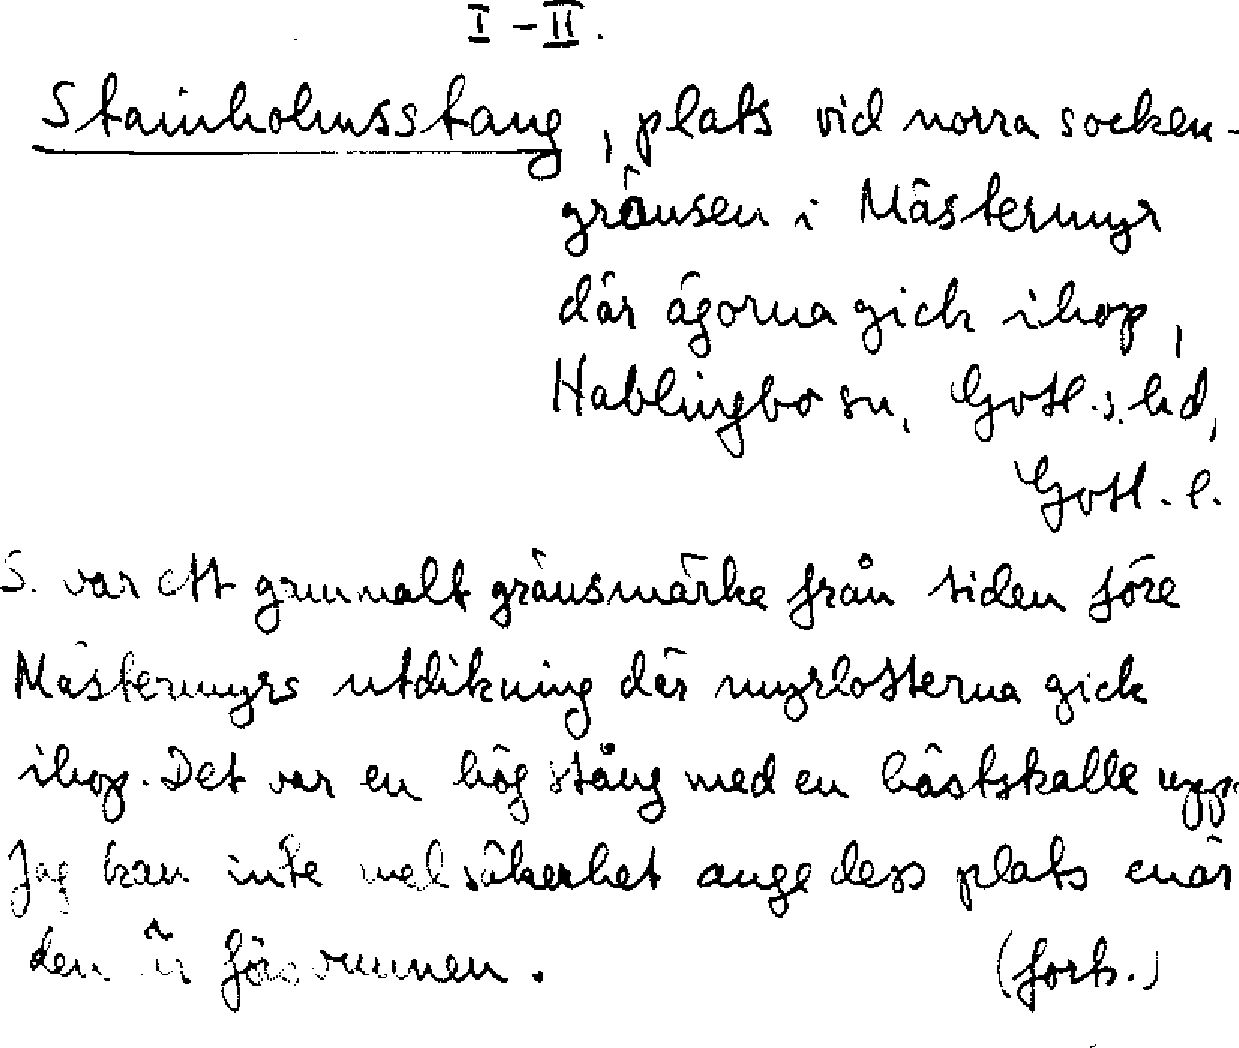 I - II.
Stainholmsstang, plats vid norra socken-
gränsen i Mästermyr
där ägorna gick ihop,
Hablingbo sn, Gotl. s. hd,
Gotl. l.
S. var ett gammalt gränsmärke från tiden före
Mästermyrs utdikning där myrlotterna gick
ihop. Det var en hög stång med en hästskalle upp.
Jag kan inte med säkerhet ange dess plats enär
den är försvunnen. (forts.)